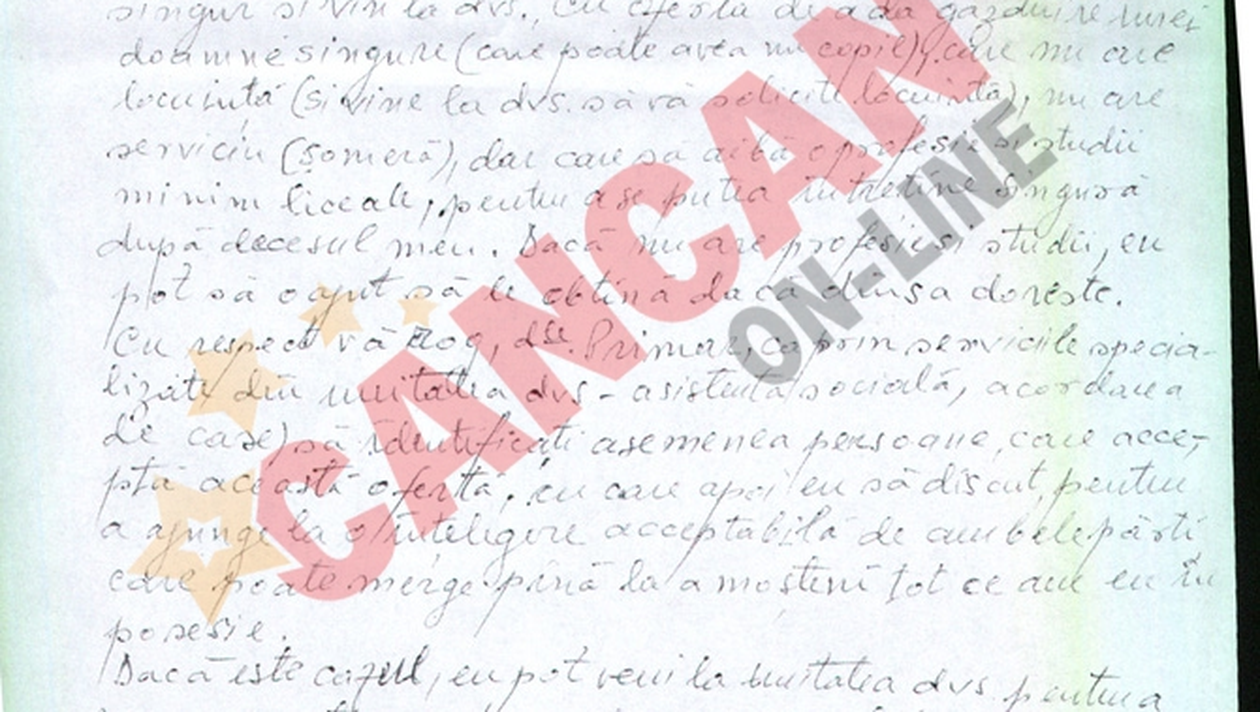 singur si vin la dvs., cu oferta de a da găzduire unei
doamne singure (care poate avea un copil), care nu are
locuintă (si vine la dvs. să vă solicite locuintă), nu are
serviciu (someră), dar care să aibă o profesie si studii
minim liceale, pentru a se putea întretine singură
după decesul meu. Dacă nu are profesie si studii, eu
pot să o ajut să le obtină dacă dînsa doreste.
Cu respect vă rog, dle. Primar, ca prin serviciile specia-
lizate din unitatea dvs - asistenta socială, acordarea
de case) să identificati asemenea persoane, care acce-
ptă această ofertă, cu care apoi eu să discut, pentru
a ajunge la o întelegere acceptabilă de ambele părti
care poate merge pînă la a mosteni tot ce am eu în
posesie.
Dacă este cazul, eu pot veni la unitatea dvs. pentru a
CANCAN
ON-LINE